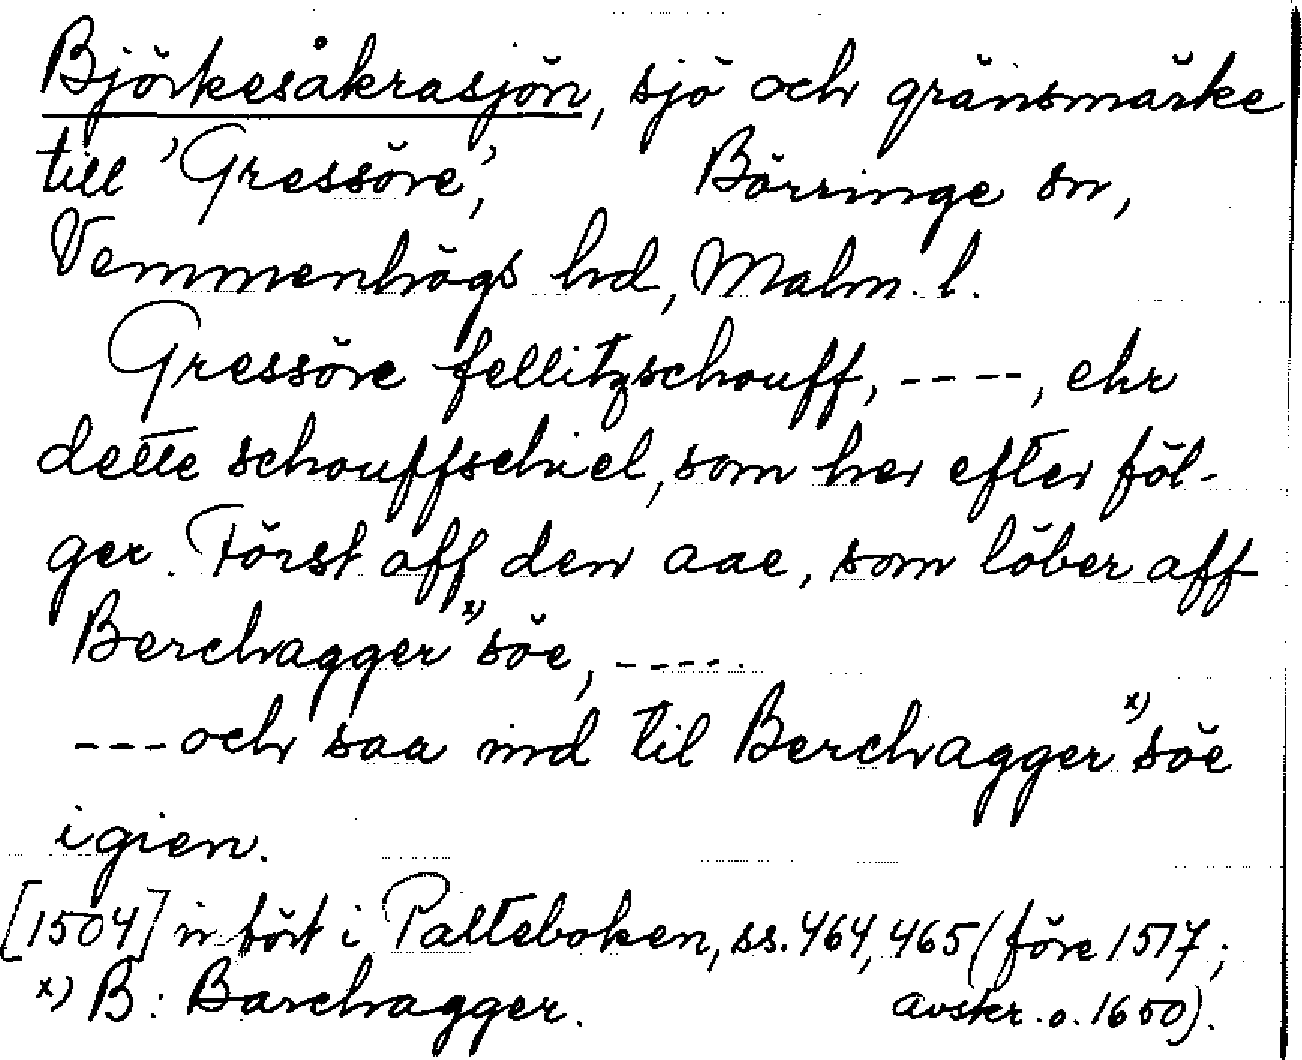 Björkesåkrasjön, sjö och gränsmärke
till 'Gressöre', Börringe sn,
Vemmenhögs hd, Malm. l.
Gressöre fellitzschouff, ----, ehr
dette schouffschiel, som her efter föl-
ger. Först aff den aae, som löber aff
Berchagger x) söe, ----.
---och saa ind til Berchagger x) söe
igien.
[1504] infört i Palteboken, ss. 464, 465 (före 1517;
x) B: Barchagger. avskr. o. 1650).